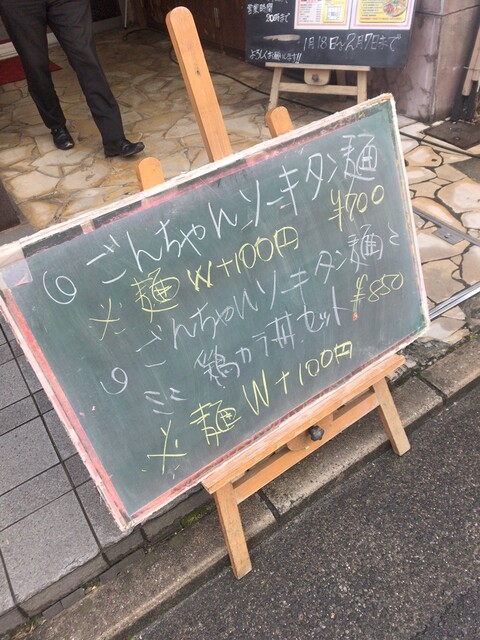 営業時間
20時まで
1月18日~2月7日まで
よろしくお願いします!!
ごんちゃんソーキタン麺
¥700
※麺W+100円
ごんちゃんソーキタン麺と
ミニ鶏カラ丼セット ¥850
※麺W+100円